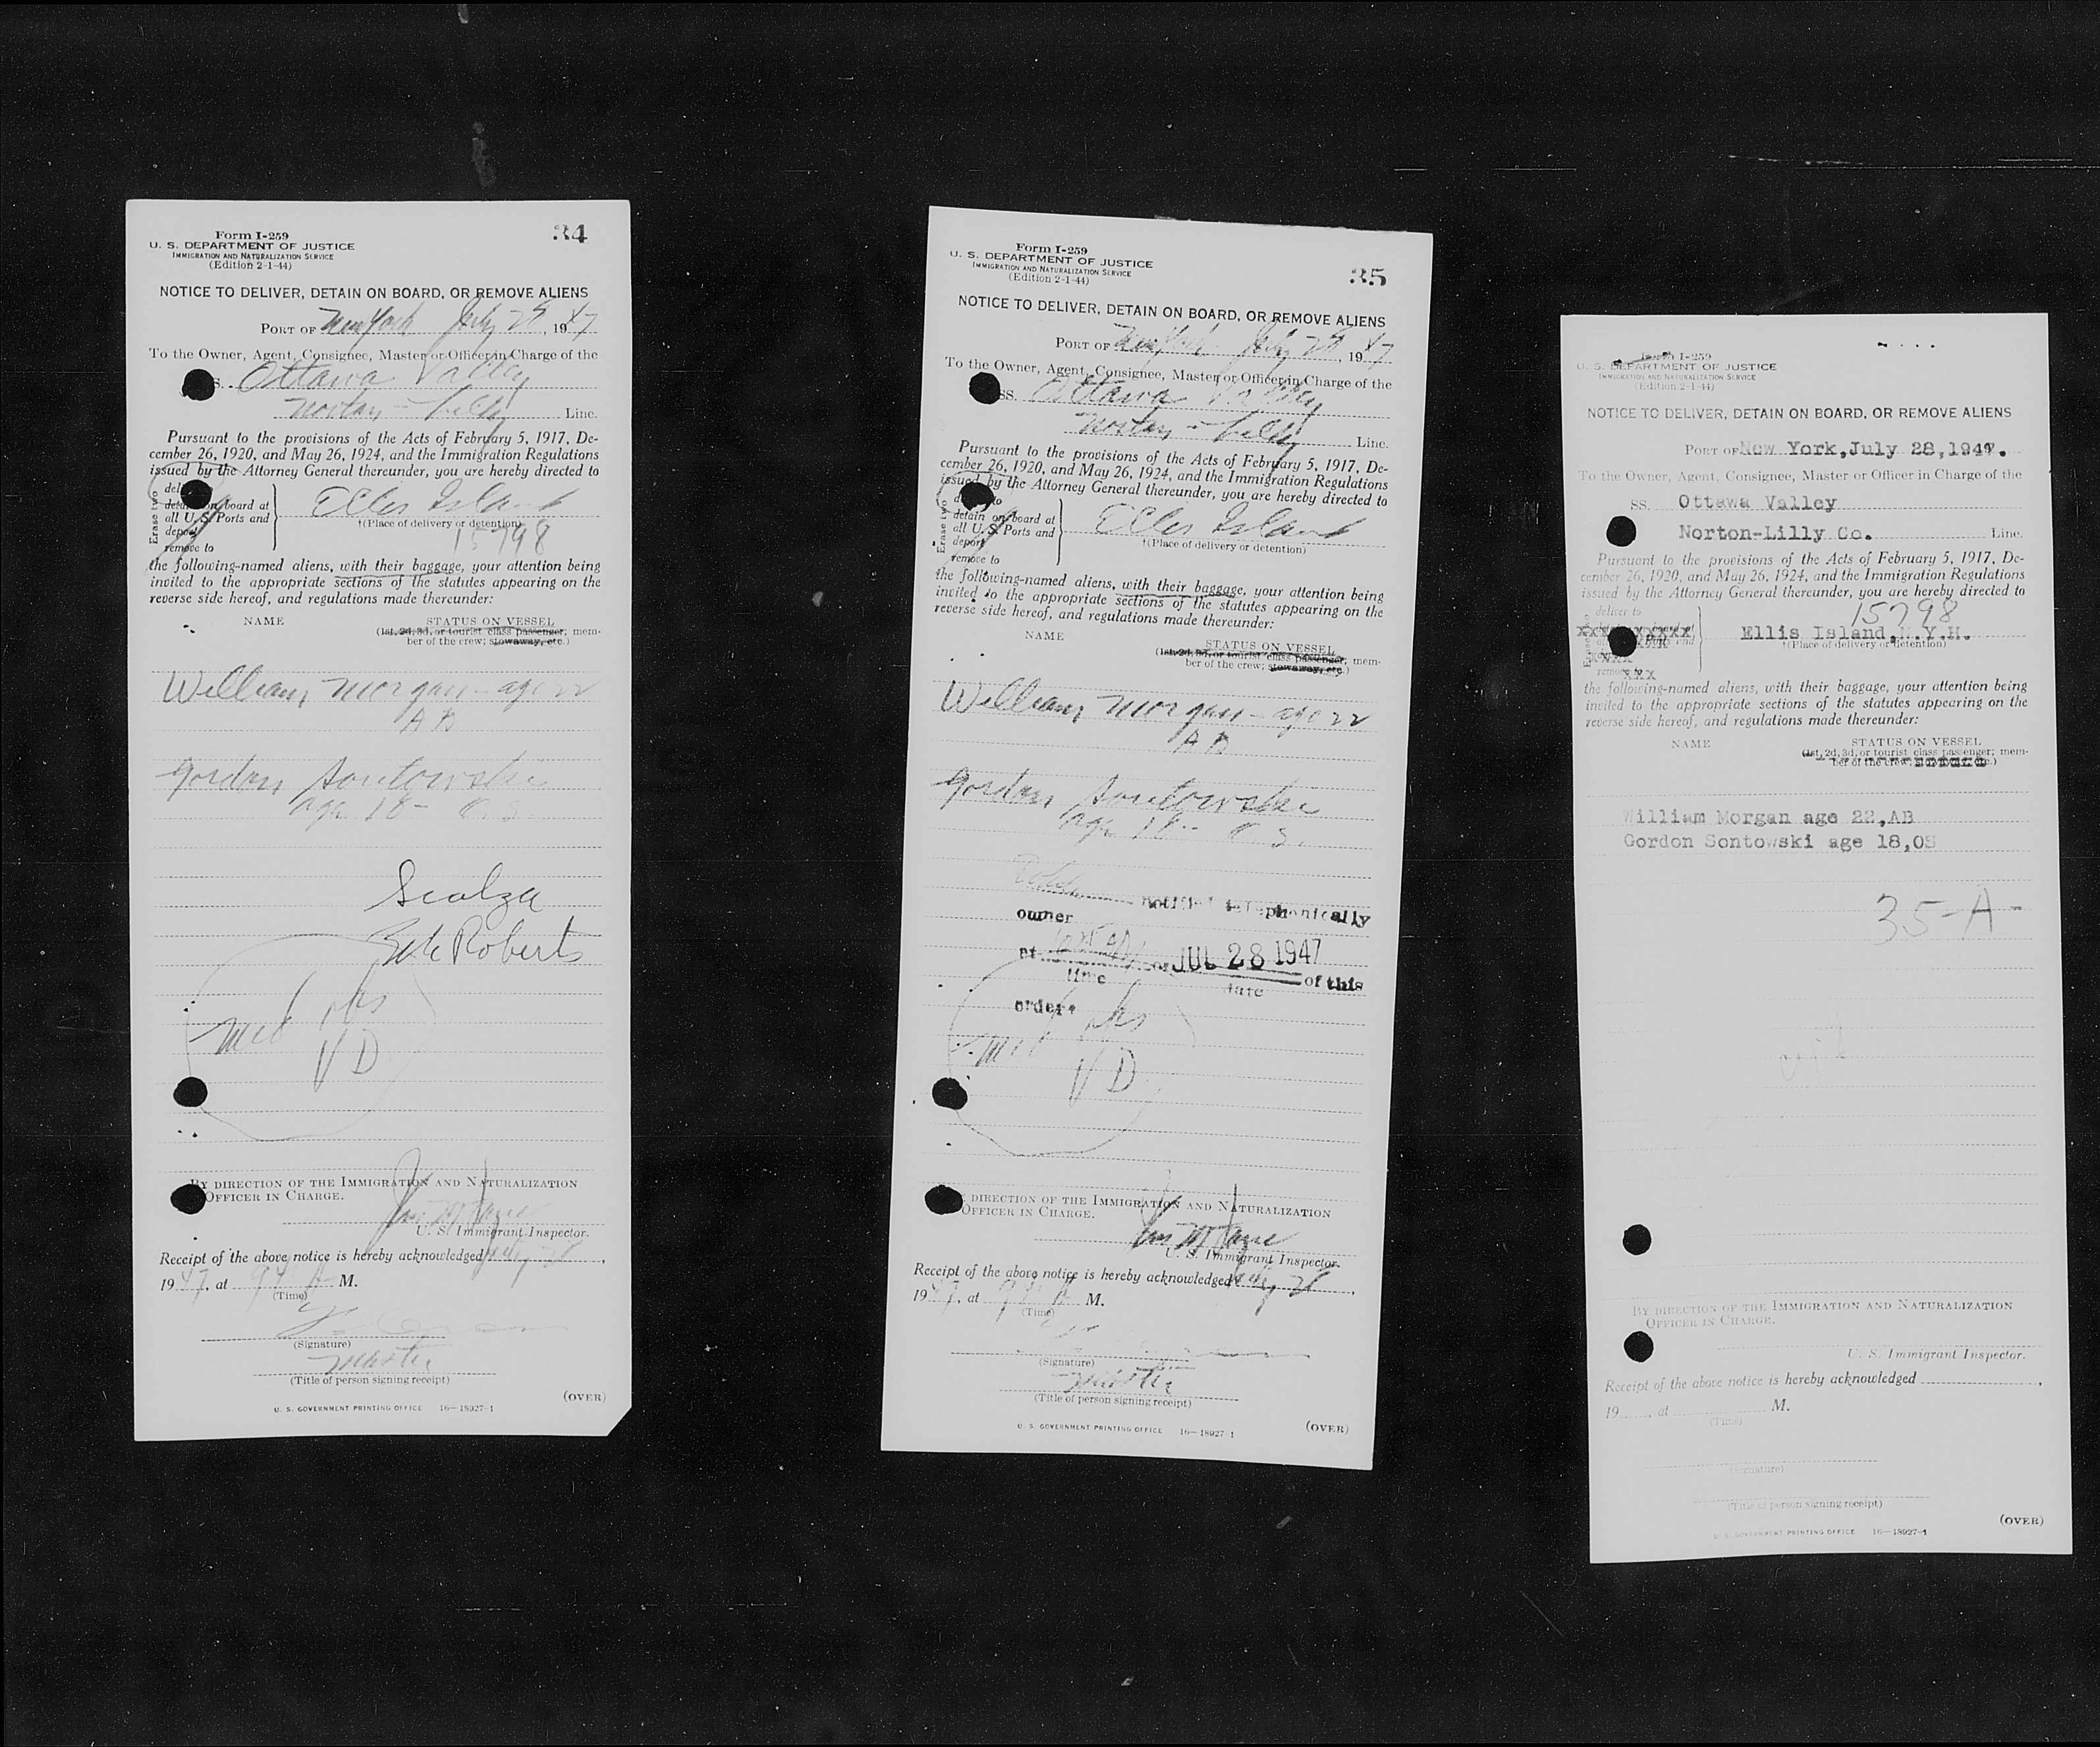 34
Form I-259
U. S. DEPARTMENT OF JUSTICE
IMMIGRATION AND NATURALIZATION SERVICE
(Edition 2-1-44)
NOTICE TO DELIVER, DETAIN ON BOARD, OR REMOVE ALIENS
PORT OF New York July 28, 1947
To the Owner, Agent, Consignee, Master or Officer in Charge of the
S. Ottawa Valley
Norton - Lilly Line.
Pursuant to the provisions of the Acts of February 5, 1917, De-
cember 26, 1920, and May 26, 1924, and the Immigration Regulations
issued by the Attorney General thereunder, you are hereby directed to
Erase two
detain on board at
all U. S. Ports and
deport
remove to
Ellis Island
†(Place of delivery or detention)
15798
the following-named aliens, with their baggage, your attention being
invited to the appropriate sections of the statutes appearing on the
reverse side hereof, and regulations made thereunder:
NAME STATUS ON VESSEL
(1st, 2d, 3d, or tourist class passenger; mem-
ber of the crew; stowaway, etc.)
William Morgan - age 22
AB
Gordon Sontowski
age 18 - O.S.
Scalza
Roberts
Med
VD
BY DIRECTION OF THE IMMIGRATION AND NATURALIZATION
OFFICER IN CHARGE.
U. S. Immigrant Inspector.
Receipt of the above notice is hereby acknowledged July 28,
1947, at A M.
(Time)
(Signature)
Master
(Title of person signing receipt)
(OVER)
U. S. GOVERNMENT PRINTING OFFICE 16—18927-1
35
Form I-259
U. S. DEPARTMENT OF JUSTICE
IMMIGRATION AND NATURALIZATION SERVICE
(Edition 2-1-44)
NOTICE TO DELIVER, DETAIN ON BOARD, OR REMOVE ALIENS
PORT OF New York July 28, 1947
To the Owner, Agent, Consignee, Master or Officer in Charge of the
SS. Ottawa Valley
Norton - Lilly Line.
Pursuant to the provisions of the Acts of February 5, 1917, De-
cember 26, 1920, and May 26, 1924, and the Immigration Regulations
issued by the Attorney General thereunder, you are hereby directed to
Erase two
detain on board at
all U. S. Ports and
deport
remove to
Ellis Island
†(Place of delivery or detention)
the following-named aliens, with their baggage, your attention being
invited to the appropriate sections of the statutes appearing on the
reverse side hereof, and regulations made thereunder:
NAME
STATUS ON VESSEL
(1st, 2d, 3d, or tourist class passenger; mem-
ber of the crew; stowaway, etc.)
William Morgan - age 22
AB
Gordon Sontowski
age 18 - O.S.
notified telephonically
owner
at on JUL 28 1947
time date of this
order.
Med
VD
DIRECTION OF THE IMMIGRATION AND NATURALIZATION
OFFICER IN CHARGE.
U. S. Immigrant Inspector.
Receipt of the above notice is hereby acknowledged July 28,
1947, at A M.
(Time)
(Signature)
Master
(Title of person signing receipt)
U. S. GOVERNMENT PRINTING OFFICE 16—18927-1
(OVER)
Form I-259
U. S. DEPARTMENT OF JUSTICE
IMMIGRATION AND NATURALIZATION SERVICE
(Edition 2-1-44)
NOTICE TO DELIVER, DETAIN ON BOARD, OR REMOVE ALIENS
PORT OF New York, July 28, 1947.
To the Owner, Agent, Consignee, Master or Officer in Charge of the
SS. Ottawa Valley
Norton-Lilly Co. Line.
Pursuant to the provisions of the Acts of February 5, 1917, De-
cember 26, 1920, and May 26, 1924, and the Immigration Regulations
issued by the Attorney General thereunder, you are hereby directed to
deliver to
15798
Ellis Island, N.Y.H.
†(Place of delivery or detention)
the following-named aliens, with their baggage, your attention being
invited to the appropriate sections of the statutes appearing on the
reverse side hereof, and regulations made thereunder:
NAME STATUS ON VESSEL
(1st, 2d, 3d, or tourist class passenger; mem-
ber of the crew; stowaway, etc.)
William Morgan age 22, AB
Gordon Sontowski age 18, OS
35-A-
BY DIRECTION OF THE IMMIGRATION AND NATURALIZATION
OFFICER IN CHARGE.
U. S. Immigrant Inspector.
Receipt of the above notice is hereby acknowledged ,
19 , at M.
(Time)
(Signature)
(Title of person signing receipt)
(OVER)
U. S. GOVERNMENT PRINTING OFFICE 16—18927-1